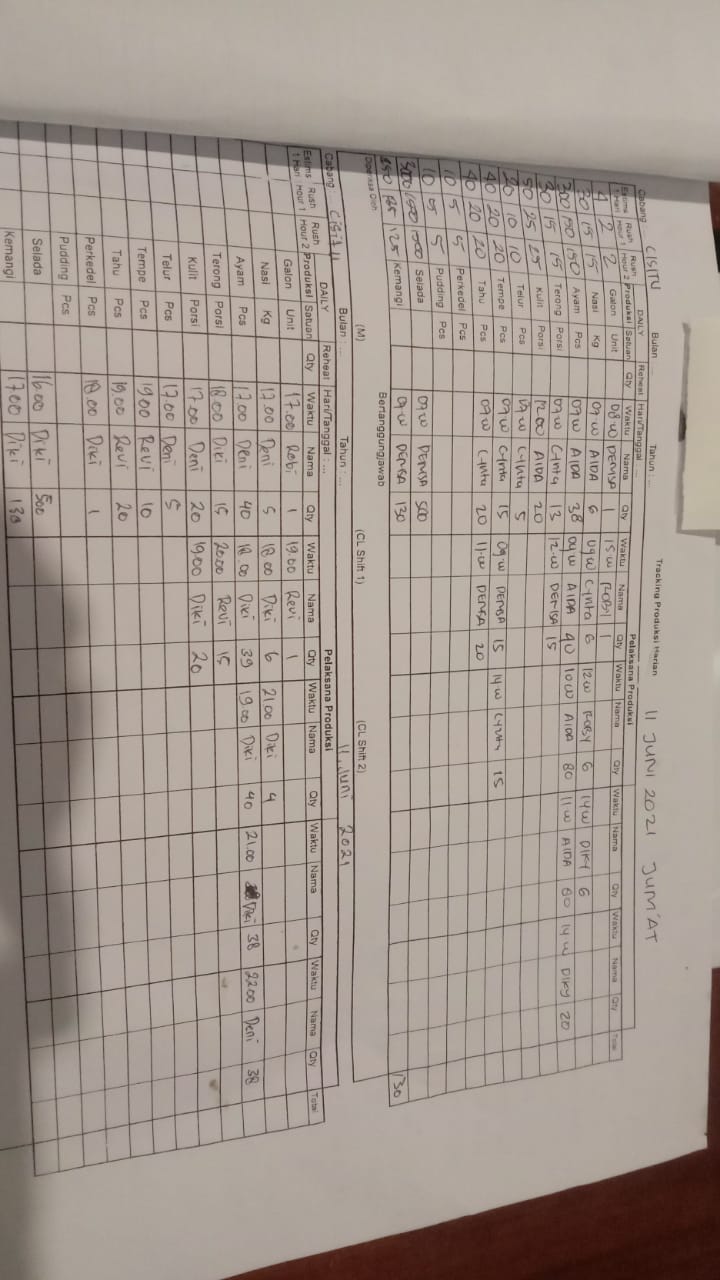 Tracking Produksi Harian
Cabang : CISITU Bulan : ... Tahun : ... 11 JUNI 2021 JUM'AT
DAILY Reheat Hari/Tanggal : ... Pelaksana Produksi
Estims 1 Hari Rush Hour 1 Rush Hour 2 Produksi Satuan Qty Waktu Nama Qty Waktu Nama Qty Waktu Nama Qty Waktu Nama Qty Waktu Nama Qty Total
4 2 2 Galon Unit 08.00 DENISA 1 15.00 ROBY 1
30 15 15 Nasi Kg 09.00 AIDA 6 09.00 Cynta 6 12.00 ROBY 6 14.00 DIKY 6
300 150 150 Ayam Pcs 09.00 AIDA 38 09.00 AIDA 40 10.00 AIDA 80 11.00 AIDA 60 14.00 DIKY 20
30 15 15 Terong Porsi 09.00 Cynta 13 12.00 DENISA 15
50 25 25 Kulit Porsi 12.00 AIDA 20
20 10 10 Telur Pcs 09.00 Cynta 5
40 20 20 Tempe Pcs 09.00 Cynta 15 09.00 DENISA 15 14.00 Cynta 15
40 20 20 Tahu Pcs 09.00 Cynta 20 11.00 DENISA 20
10 5 5 Perkedel Pcs
10 5 5 Pudding Pcs
3000 1500 1500 Selada 09.00 DENISA 500
250 125 125 Kemangi 09.00 DENISA 130 130
Diperiksa Oleh Bertanggungjawab
(M) (CL Shift 1) (CL Shift 2)
Cabang : Cisitu Bulan : ... Tahun : ... 11, Juni 2021
DAILY Reheat Hari/Tanggal : ... Pelaksana Produksi
Estims 1 Hari Rush Hour 1 Rush Hour 2 Produksi Satuan Qty Waktu Nama Qty Waktu Nama Qty Waktu Nama Qty Waktu Nama Qty Waktu Nama Qty Total
Galon Unit 17.00 Robi 1 19.00 Revi 1
Nasi Kg 17.00 Deni 5 18.00 Diki 6 21.00 Diki 4
Ayam Pcs 17.00 Deni 40 18.00 Diki 39 19.00 Diki 40 21.00 Diki 38 22.00 Deni 38
Terong Porsi 18.00 Diki 15 20.00 Revi 15
Kulit Porsi 17.00 Deni 20 19.00 Diki 20
Telur Pcs 17.00 Deni 5
Tempe Pcs 19.00 Revi 10
Tahu Pcs 19.00 Revi 20
Perkedel Pcs 18.00 Diki 1
Pudding Pcs
Selada 16.00 Diki 500
Kemangi 17.00 Diki 130